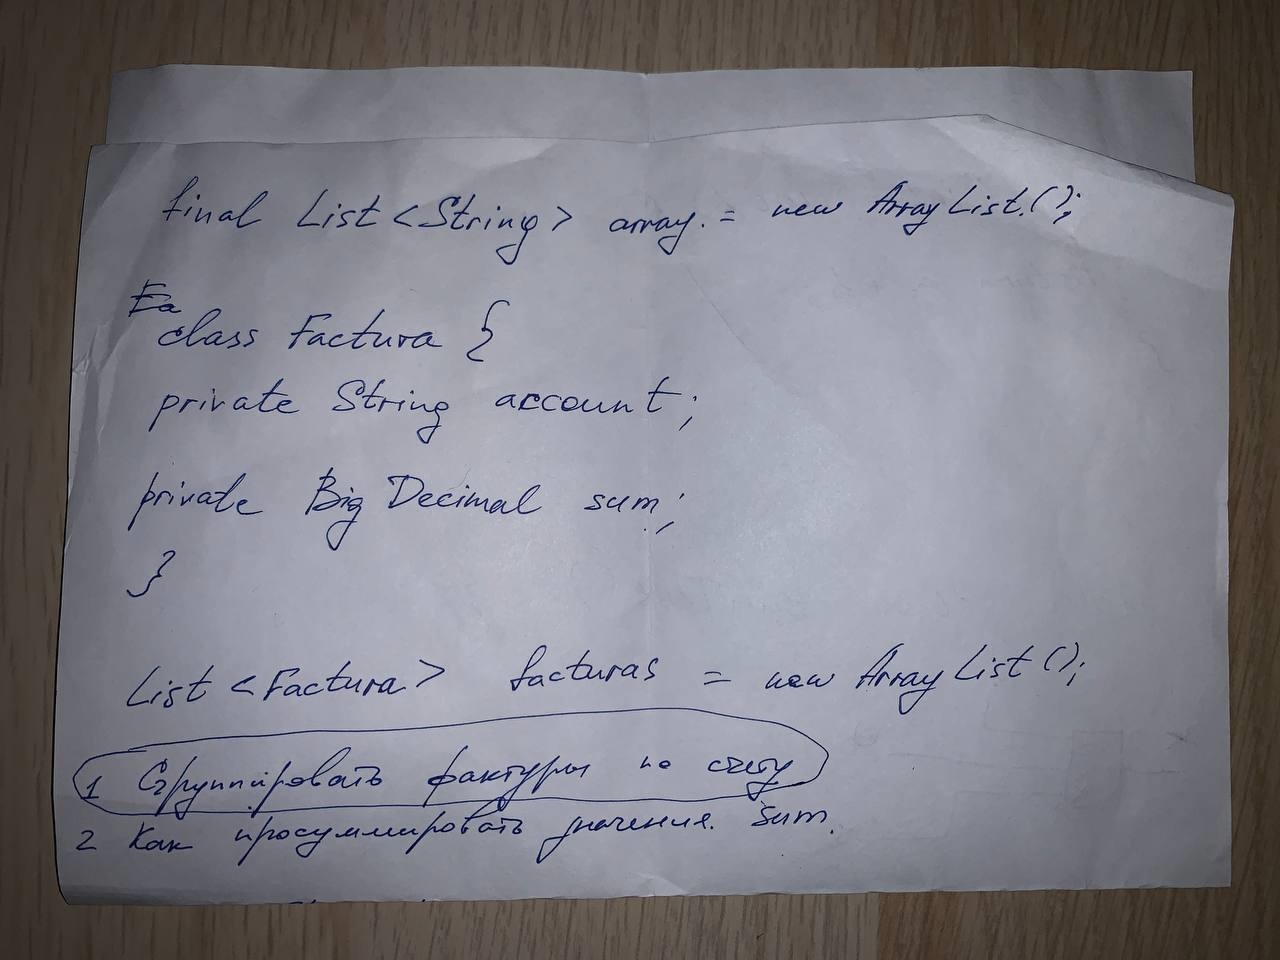 final List <String> array. = new ArrayList.();
Fa
class Factura {
private String account;
private Big Decimal sum;
}
List <Factura> facturas = new ArrayList();
1 Сгруппировать фактуры по счету
2 Как просуммировать значения. Sum.